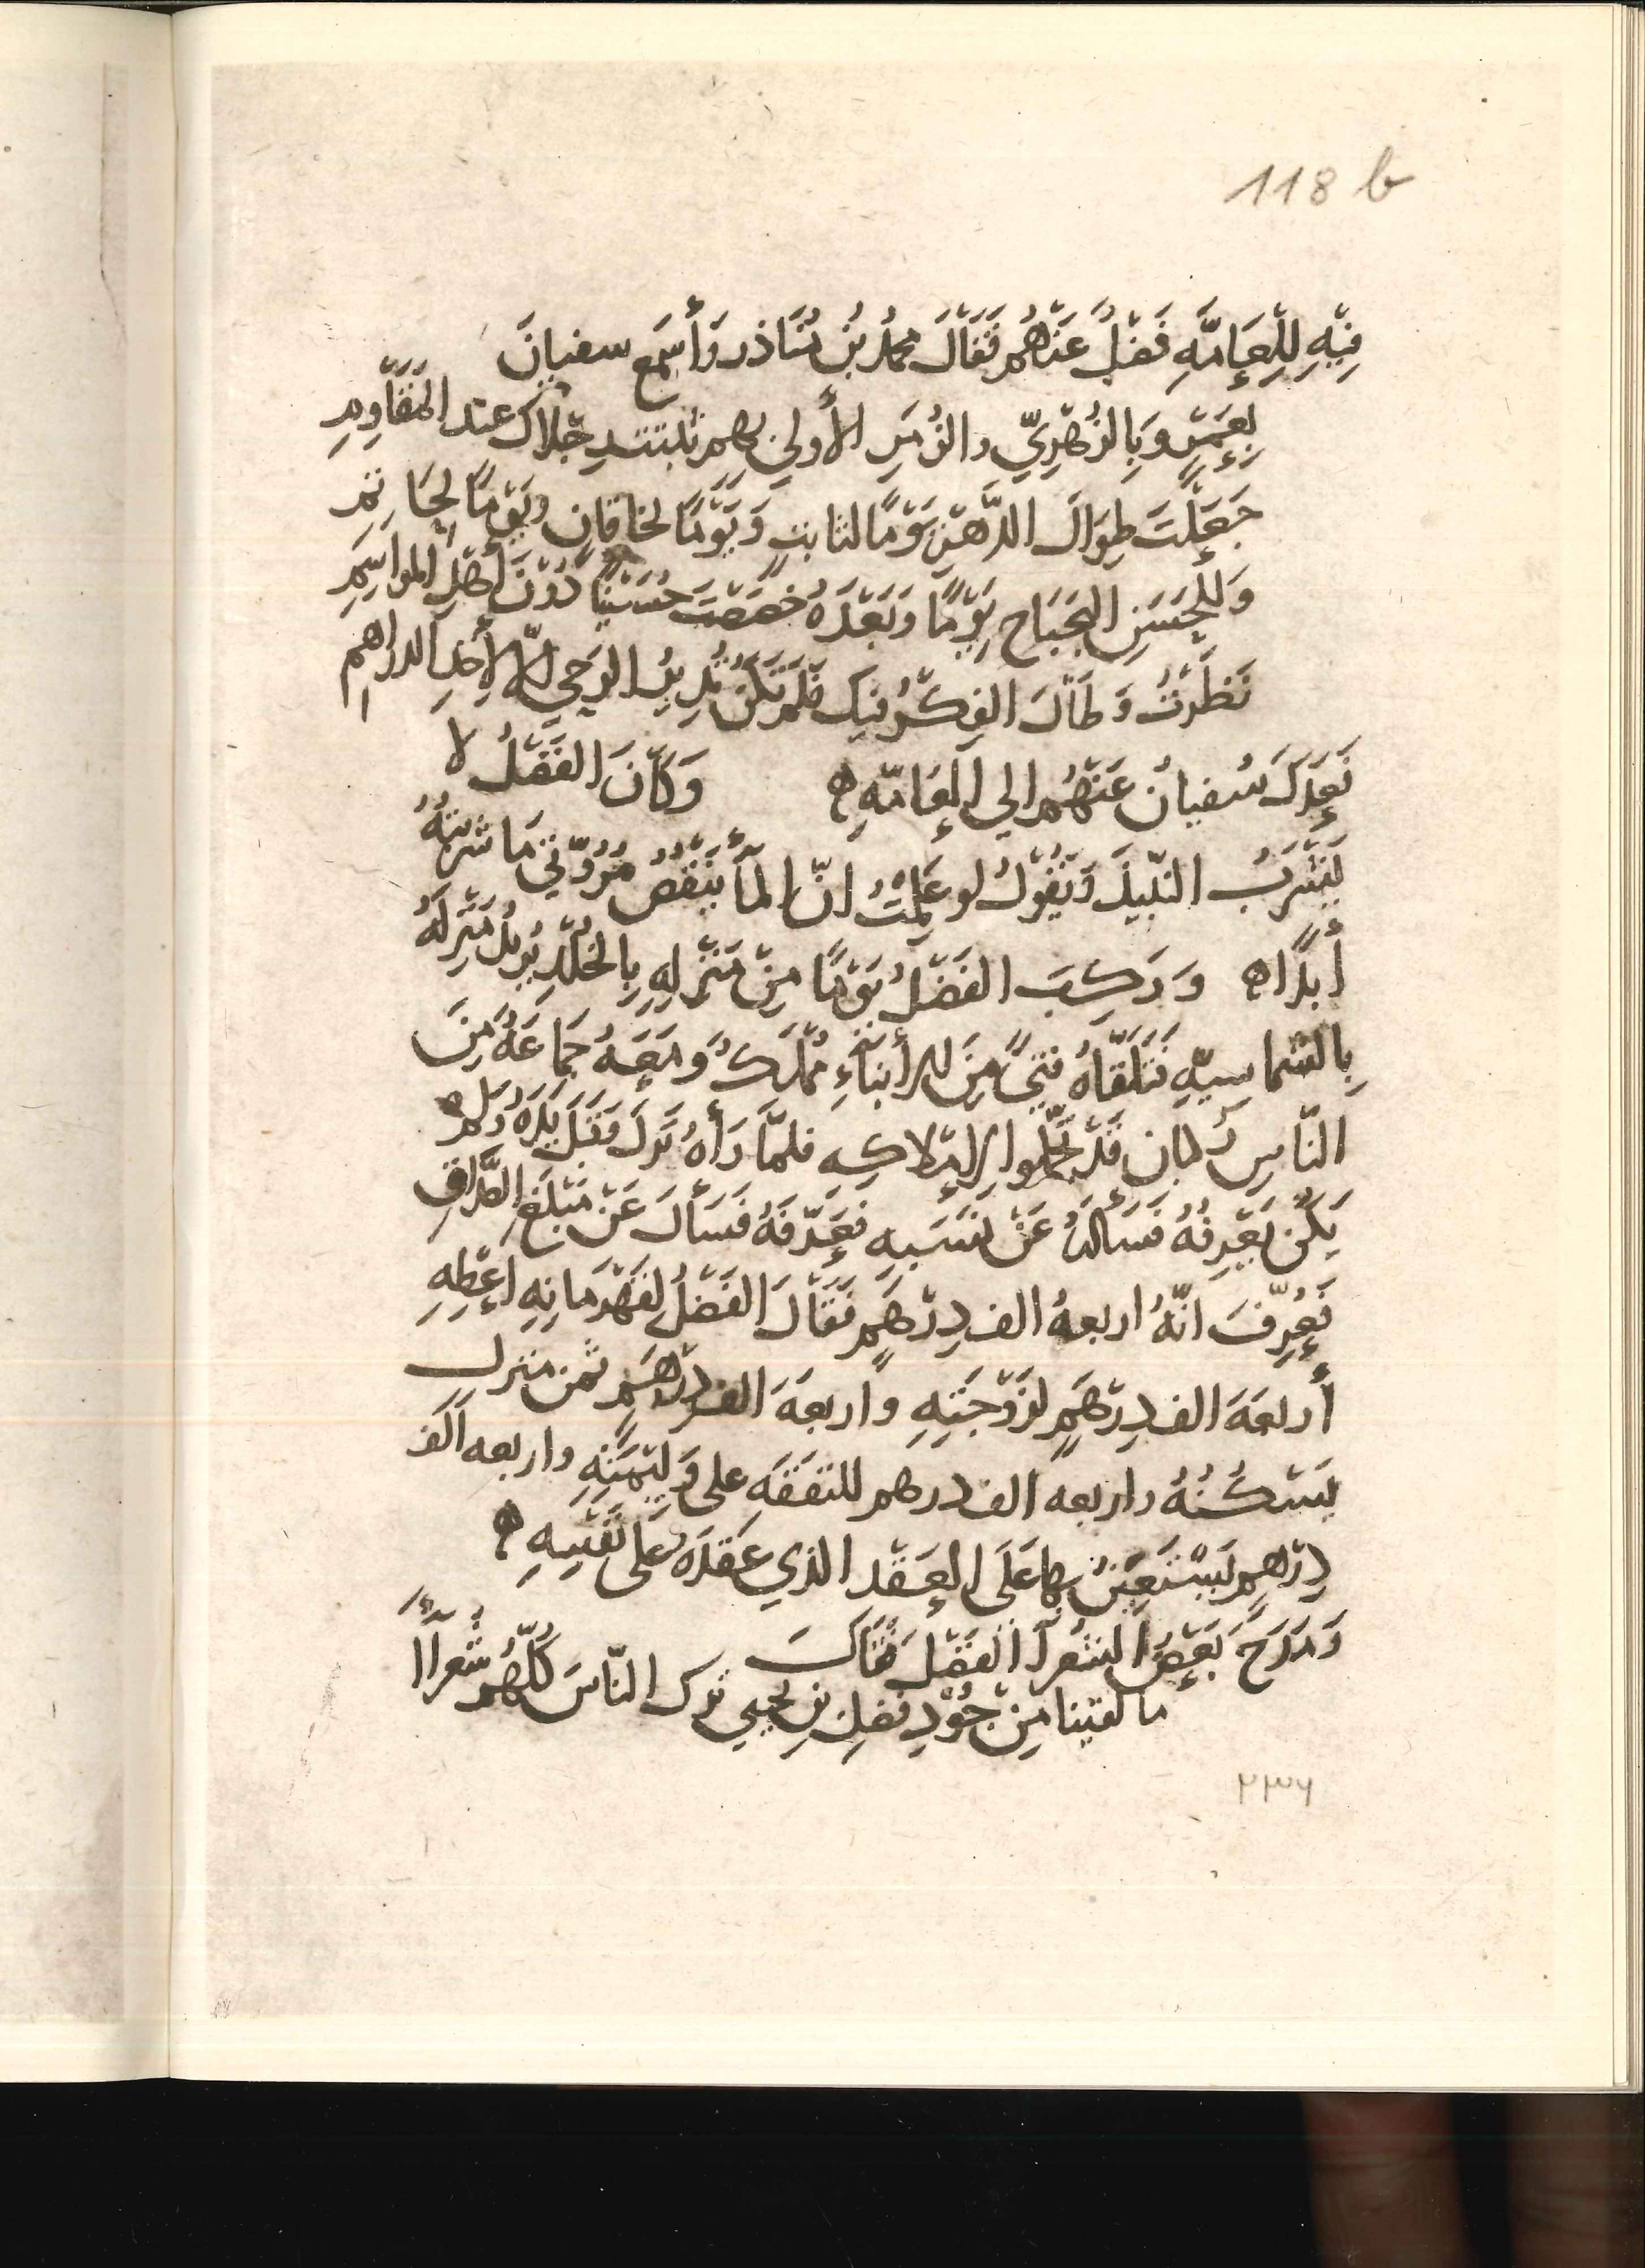 118 b
فِيْهِ لِلْعَامَّةِ فَضْلٌ عَنْهُم فَقَالَ محمدُ بنُ مُنَاذر وَأسمَع سفيانَ
بِعَمْرٍو وَبِالزُهْرِيّ والزُمَرِ الأولي بهم ثبتت رجلاك عند المَقَاوِمِ
جَعَلْتَ طِوَالَ الدَّهْرِ يَوْمًا لثابتٍ وَيَوْمًا لخاقان ويَوْمًا لحَاتِمِ
وَلِلْحَسَنِ البَحْبَاحِ يَوْمًا وَبَعْدَهُ خصَصْتَ حُسَيْنًا دُوْنَ أهْلِ المواسِمِ
نَظَرْتُ وَطَالَ الفِكْرُ فيكَ فَلَمْ تَكُنْ تُدِيْرُ الرَحي الّا لِأخْذِ الدراهم
فَعَدَلَ سُفيانُ عَنْهُم الي العَامّةِ ه وَكَانَ الفَضْلُ لا
يَشْرَبُ النَبِيذَ وَيَقُوْلُ لو عَلِمْتُ انّ المآ يَنْقُصُ مُرُوّتي مَا شَرِبْتُهُ
أبدًا ه وَرَكِبَ الفَضْلُ يَوْمًا مِنْ مَنْزِلِهِ بِالخُلْدِ يُرِيْدُ مَنْزِلَهُ
بِالشماسيّةِ فَتَلَقَّاهُ فتىً مِنَ الأبْنَاءِ مُمْلَكٌ وَمَعَهُ جَمَاعَةٌ مِنَ
النّاسِ رُكبان قَدْ تَجَمَّلوا لِإمْلاكِهِ فلمَّا رَأهُ نَزَلَ وقَبَّلَ يَدَهُ وَلَم
يَكُنْ يَعْرِفُهُ فَسَألَهُ عَنْ نَسَبِهِ فَعَرّفَهُ فَسَألَ عَنْ مَبْلَغِ الصَّدَاقِ
فَعُرِّفَ انّهُ اربعةُ الف دِرْهَمٍ فَقَالَ الفَضْلُ لِقَهْرَمَانِهِ اعْطِهِ
أربعَةَ الف دِرْهَمٍ لِزَوْجَتِهِ واربعَةَ الف دِرْهَمٍ ثمن منزلٍ
يَسْكُنُهُ واربعه الف درهم للنَفَقَةِ على وَلِيْمَتِهِ واربعه الف
دِرْهم يَسْتَعِيْنُ بها عَلَى العَقْد الذي عَقَدَهُ عَلَى نَفْسِهِ ه
وَمَدَحَ بَعْضُ الشُعَرآ الفَضْلَ فَقَالَ
ما لقينا مِنْ جُوْدِ فضلِ بن يحيي ترك النّاسَ كُلّهُم شُعَرآأ
٢٣٦